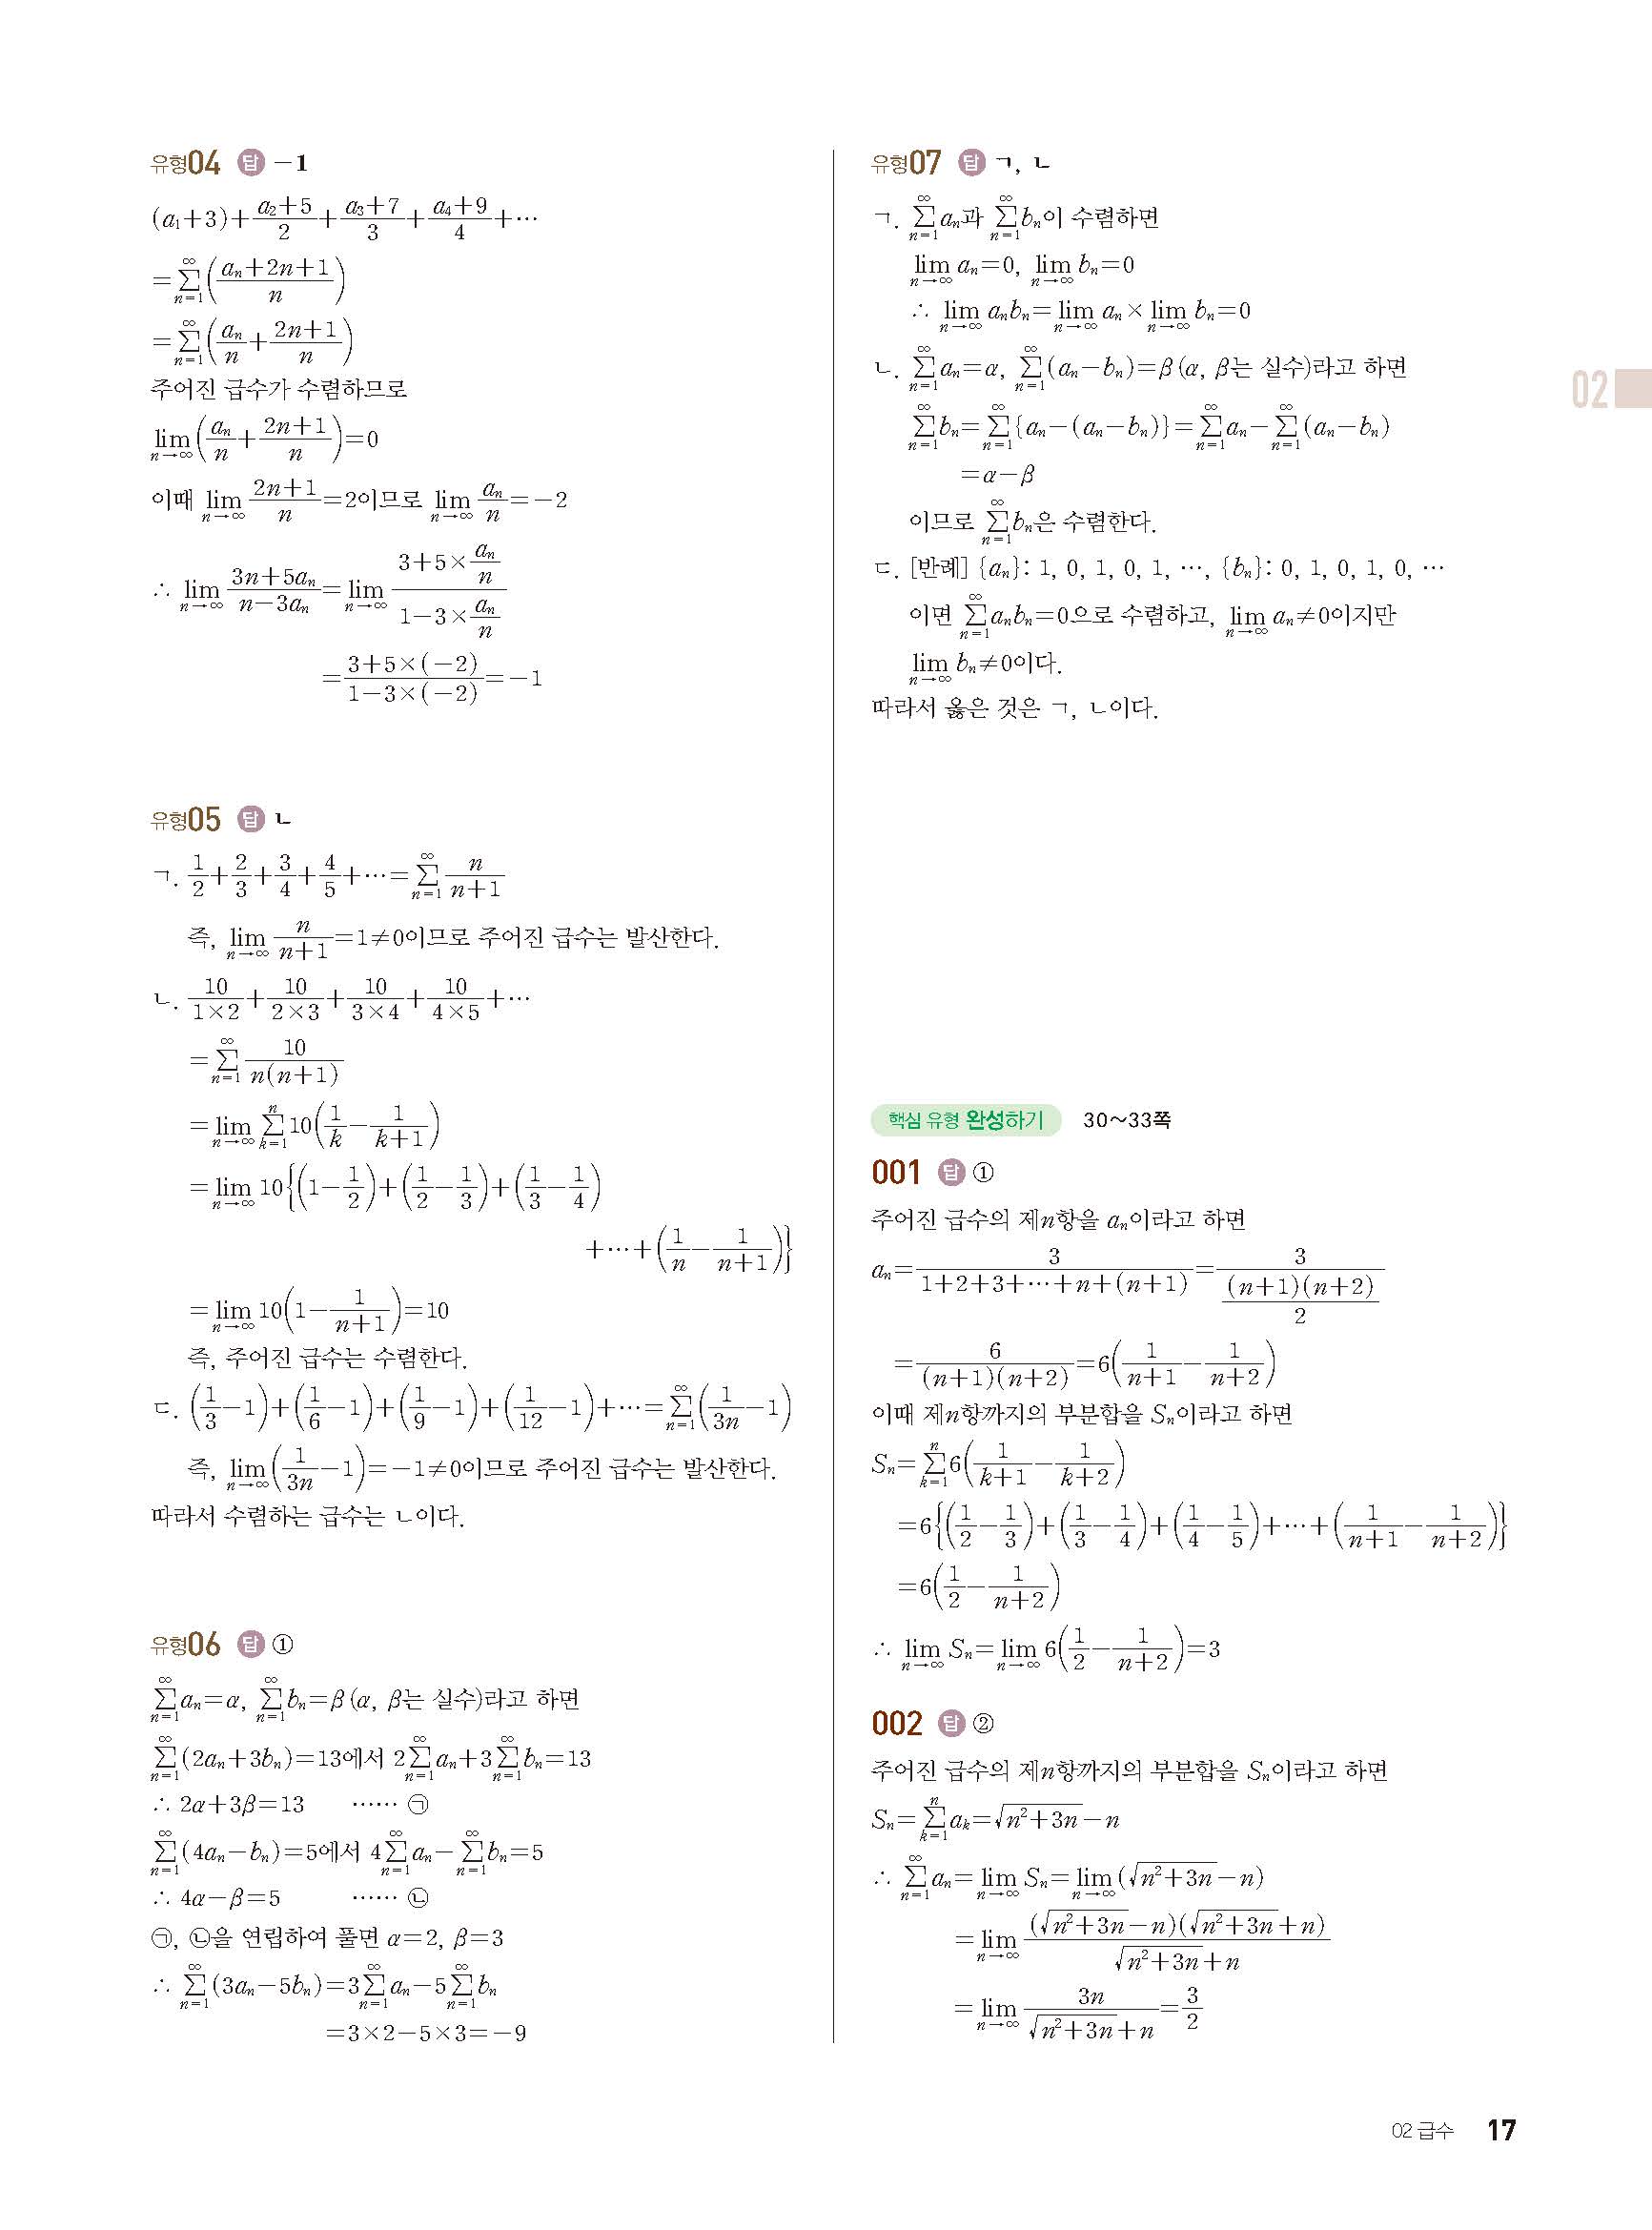 유형04 답 -1
(a₁+3)+\frac{a₂+5}{2}+\frac{a₃+7}{3}+\frac{a₄+9}{4}+⋯
=\sum_{n=1}^{∞}(\frac{aₙ+2n+1}{n})
=\sum_{n=1}^{∞}(\frac{aₙ}{n}+\frac{2n+1}{n})
주어진 급수가 수렴하므로
\lim_{n→∞}(\frac{aₙ}{n}+\frac{2n+1}{n})=0
이때 \lim_{n→∞}\frac{2n+1}{n}=2이므로 \lim_{n→∞}\frac{aₙ}{n}=-2
∴ \lim_{n→∞}\frac{3n+5aₙ}{n-3aₙ}=\lim_{n→∞}\frac{3+5×\frac{aₙ}{n}}{1-3×\frac{aₙ}{n}}
=\frac{3+5×(-2)}{1-3×(-2)}=-1
유형05 답 ㄴ
ㄱ. \frac{1}{2}+\frac{2}{3}+\frac{3}{4}+\frac{4}{5}+⋯=\sum_{n=1}^{∞}\frac{n}{n+1}
즉, \lim_{n→∞}\frac{n}{n+1}=1≠0이므로 주어진 급수는 발산한다.
ㄴ. \frac{10}{1×2}+\frac{10}{2×3}+\frac{10}{3×4}+\frac{10}{4×5}+⋯
=\sum_{n=1}^{∞}\frac{10}{n(n+1)}
=\lim_{n→∞}\sum_{k=1}^{n}10(\frac{1}{k}-\frac{1}{k+1})
=\lim_{n→∞}10{(1-\frac{1}{2})+(\frac{1}{2}-\frac{1}{3})+(\frac{1}{3}-\frac{1}{4})
+⋯+(\frac{1}{n}-\frac{1}{n+1})}
=\lim_{n→∞}10(1-\frac{1}{n+1})=10
즉, 주어진 급수는 수렴한다.
ㄷ. (\frac{1}{3}-1)+(\frac{1}{6}-1)+(\frac{1}{9}-1)+(\frac{1}{12}-1)+⋯=\sum_{n=1}^{∞}(\frac{1}{3n}-1)
즉, \lim_{n→∞}(\frac{1}{3n}-1)=-1≠0이므로 주어진 급수는 발산한다.
따라서 수렴하는 급수는 ㄴ이다.
유형06 답 ①
\sum_{n=1}^{∞}aₙ=α, \sum_{n=1}^{∞}bₙ=β(α, β는 실수)라고 하면
\sum_{n=1}^{∞}(2aₙ+3bₙ)=13에서 2\sum_{n=1}^{∞}aₙ+3\sum_{n=1}^{∞}bₙ=13
∴ 2α+3β=13 …… ㉠
\sum_{n=1}^{∞}(4aₙ-bₙ)=5에서 4\sum_{n=1}^{∞}aₙ-\sum_{n=1}^{∞}bₙ=5
∴ 4α-β=5 …… ㉡
㉠, ㉡을 연립하여 풀면 α=2, β=3
∴ \sum_{n=1}^{∞}(3aₙ-5bₙ)=3\sum_{n=1}^{∞}aₙ-5\sum_{n=1}^{∞}bₙ
=3×2-5×3=-9
유형07 답 ㄱ, ㄴ
ㄱ. \sum_{n=1}^{∞}aₙ과 \sum_{n=1}^{∞}bₙ이 수렴하면
\lim_{n→∞}aₙ=0, \lim_{n→∞}bₙ=0
∴ \lim_{n→∞}aₙbₙ=\lim_{n→∞}aₙ×\lim_{n→∞}bₙ=0
ㄴ. \sum_{n=1}^{∞}aₙ=α, \sum_{n=1}^{∞}(aₙ-bₙ)=β(α, β는 실수)라고 하면
\sum_{n=1}^{∞}bₙ=\sum_{n=1}^{∞}{aₙ-(aₙ-bₙ)}=\sum_{n=1}^{∞}aₙ-\sum_{n=1}^{∞}(aₙ-bₙ)
=α-β
이므로 \sum_{n=1}^{∞}bₙ은 수렴한다.
ㄷ. [반례] {aₙ}: 1, 0, 1, 0, 1, ⋯, {bₙ}: 0, 1, 0, 1, 0, ⋯
이면 \sum_{n=1}^{∞}aₙbₙ=0으로 수렴하고, \lim_{n→∞}aₙ≠0이지만
\lim_{n→∞}bₙ≠0이다.
따라서 옳은 것은 ㄱ, ㄴ이다.
02
핵심 유형 완성하기 30~33쪽
001 답 ①
주어진 급수의 제n항을 aₙ이라고 하면
aₙ=\frac{3}{1+2+3+⋯+n+(n+1)}=\frac{3}{\frac{(n+1)(n+2)}{2}}
=\frac{6}{(n+1)(n+2)}=6(\frac{1}{n+1}-\frac{1}{n+2})
이때 제n항까지의 부분합을 Sₙ이라고 하면
Sₙ=\sum_{k=1}^{n}6(\frac{1}{k+1}-\frac{1}{k+2})
=6{(\frac{1}{2}-\frac{1}{3})+(\frac{1}{3}-\frac{1}{4})+(\frac{1}{4}-\frac{1}{5})+⋯+(\frac{1}{n+1}-\frac{1}{n+2})}
=6(\frac{1}{2}-\frac{1}{n+2})
∴ \lim_{n→∞}Sₙ=\lim_{n→∞}6(\frac{1}{2}-\frac{1}{n+2})=3
002 답 ②
주어진 급수의 제n항까지의 부분합을 Sₙ이라고 하면
Sₙ=\sum_{k=1}^{n}a_k=\sqrt{n²+3n}-n
∴ \sum_{n=1}^{∞}aₙ=\lim_{n→∞}Sₙ=\lim_{n→∞}(\sqrt{n²+3n}-n)
=\lim_{n→∞}\frac{(\sqrt{n²+3n}-n)(\sqrt{n²+3n}+n)}{\sqrt{n²+3n}+n}
=\lim_{n→∞}\frac{3n}{\sqrt{n²+3n}+n}=\frac{3}{2}
02 급수 17